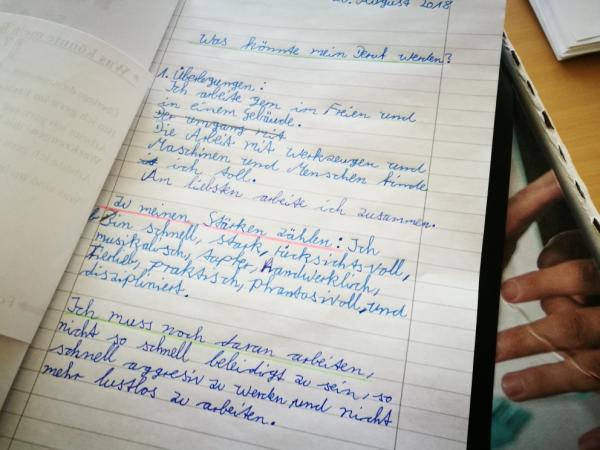 20. August 2018
Was könnte mein Beruf werden?
1. Überlegungen:
Ich arbeite gern im Freien und
in einem Gebäude.
Der umgang mit
Die Arbeit mit Werkzeugen und
Maschinen und Menschen finde
ich toll.
Am liebsten arbeite ich zusammen.
Zu meinen Stärken zählen: Ich
bin schnell, stark, rücksichtsvoll,
musikalisch, tapfer, handwerklich,
praktisch, phantasivoll, und
diszipliniert.
Ich muss noch daran arbeiten,
nicht so schnell beleidigt zu sein, so
schnell aggresiv zu werden und nicht
mehr lustlos zu arbeiten.